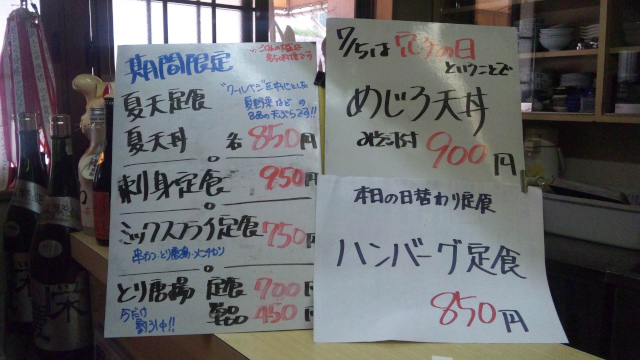 期間限定
夏天定食
"クールベジ"を中心とした
夏野菜など の
天ぷらです!!
夏天丼 各850円
刺身定食 950円
ミックスフライ定食 750円
串カツ・とり唐揚・メンチカツ
とり唐揚 定食 700円
単品 450円
今だけ
割引中!!
7/5は 穴子の日
ということで
めじろ天丼
みそ汁付 900円
本日の日替わり定食
ハンバーグ定食
850円